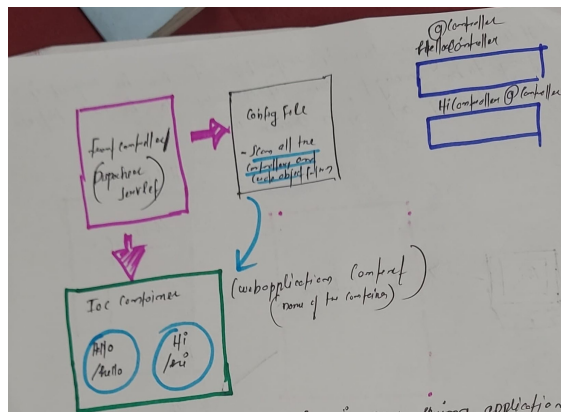 @Controller
HelloController
HiController @Controller
Front controller/
(Dispatcher
Servlet)
Config File
- Scan all the
controllers and
create object
IOC Container
(webapplication Context)
(name of the container)
Hello
/hello
Hi
/hi
application